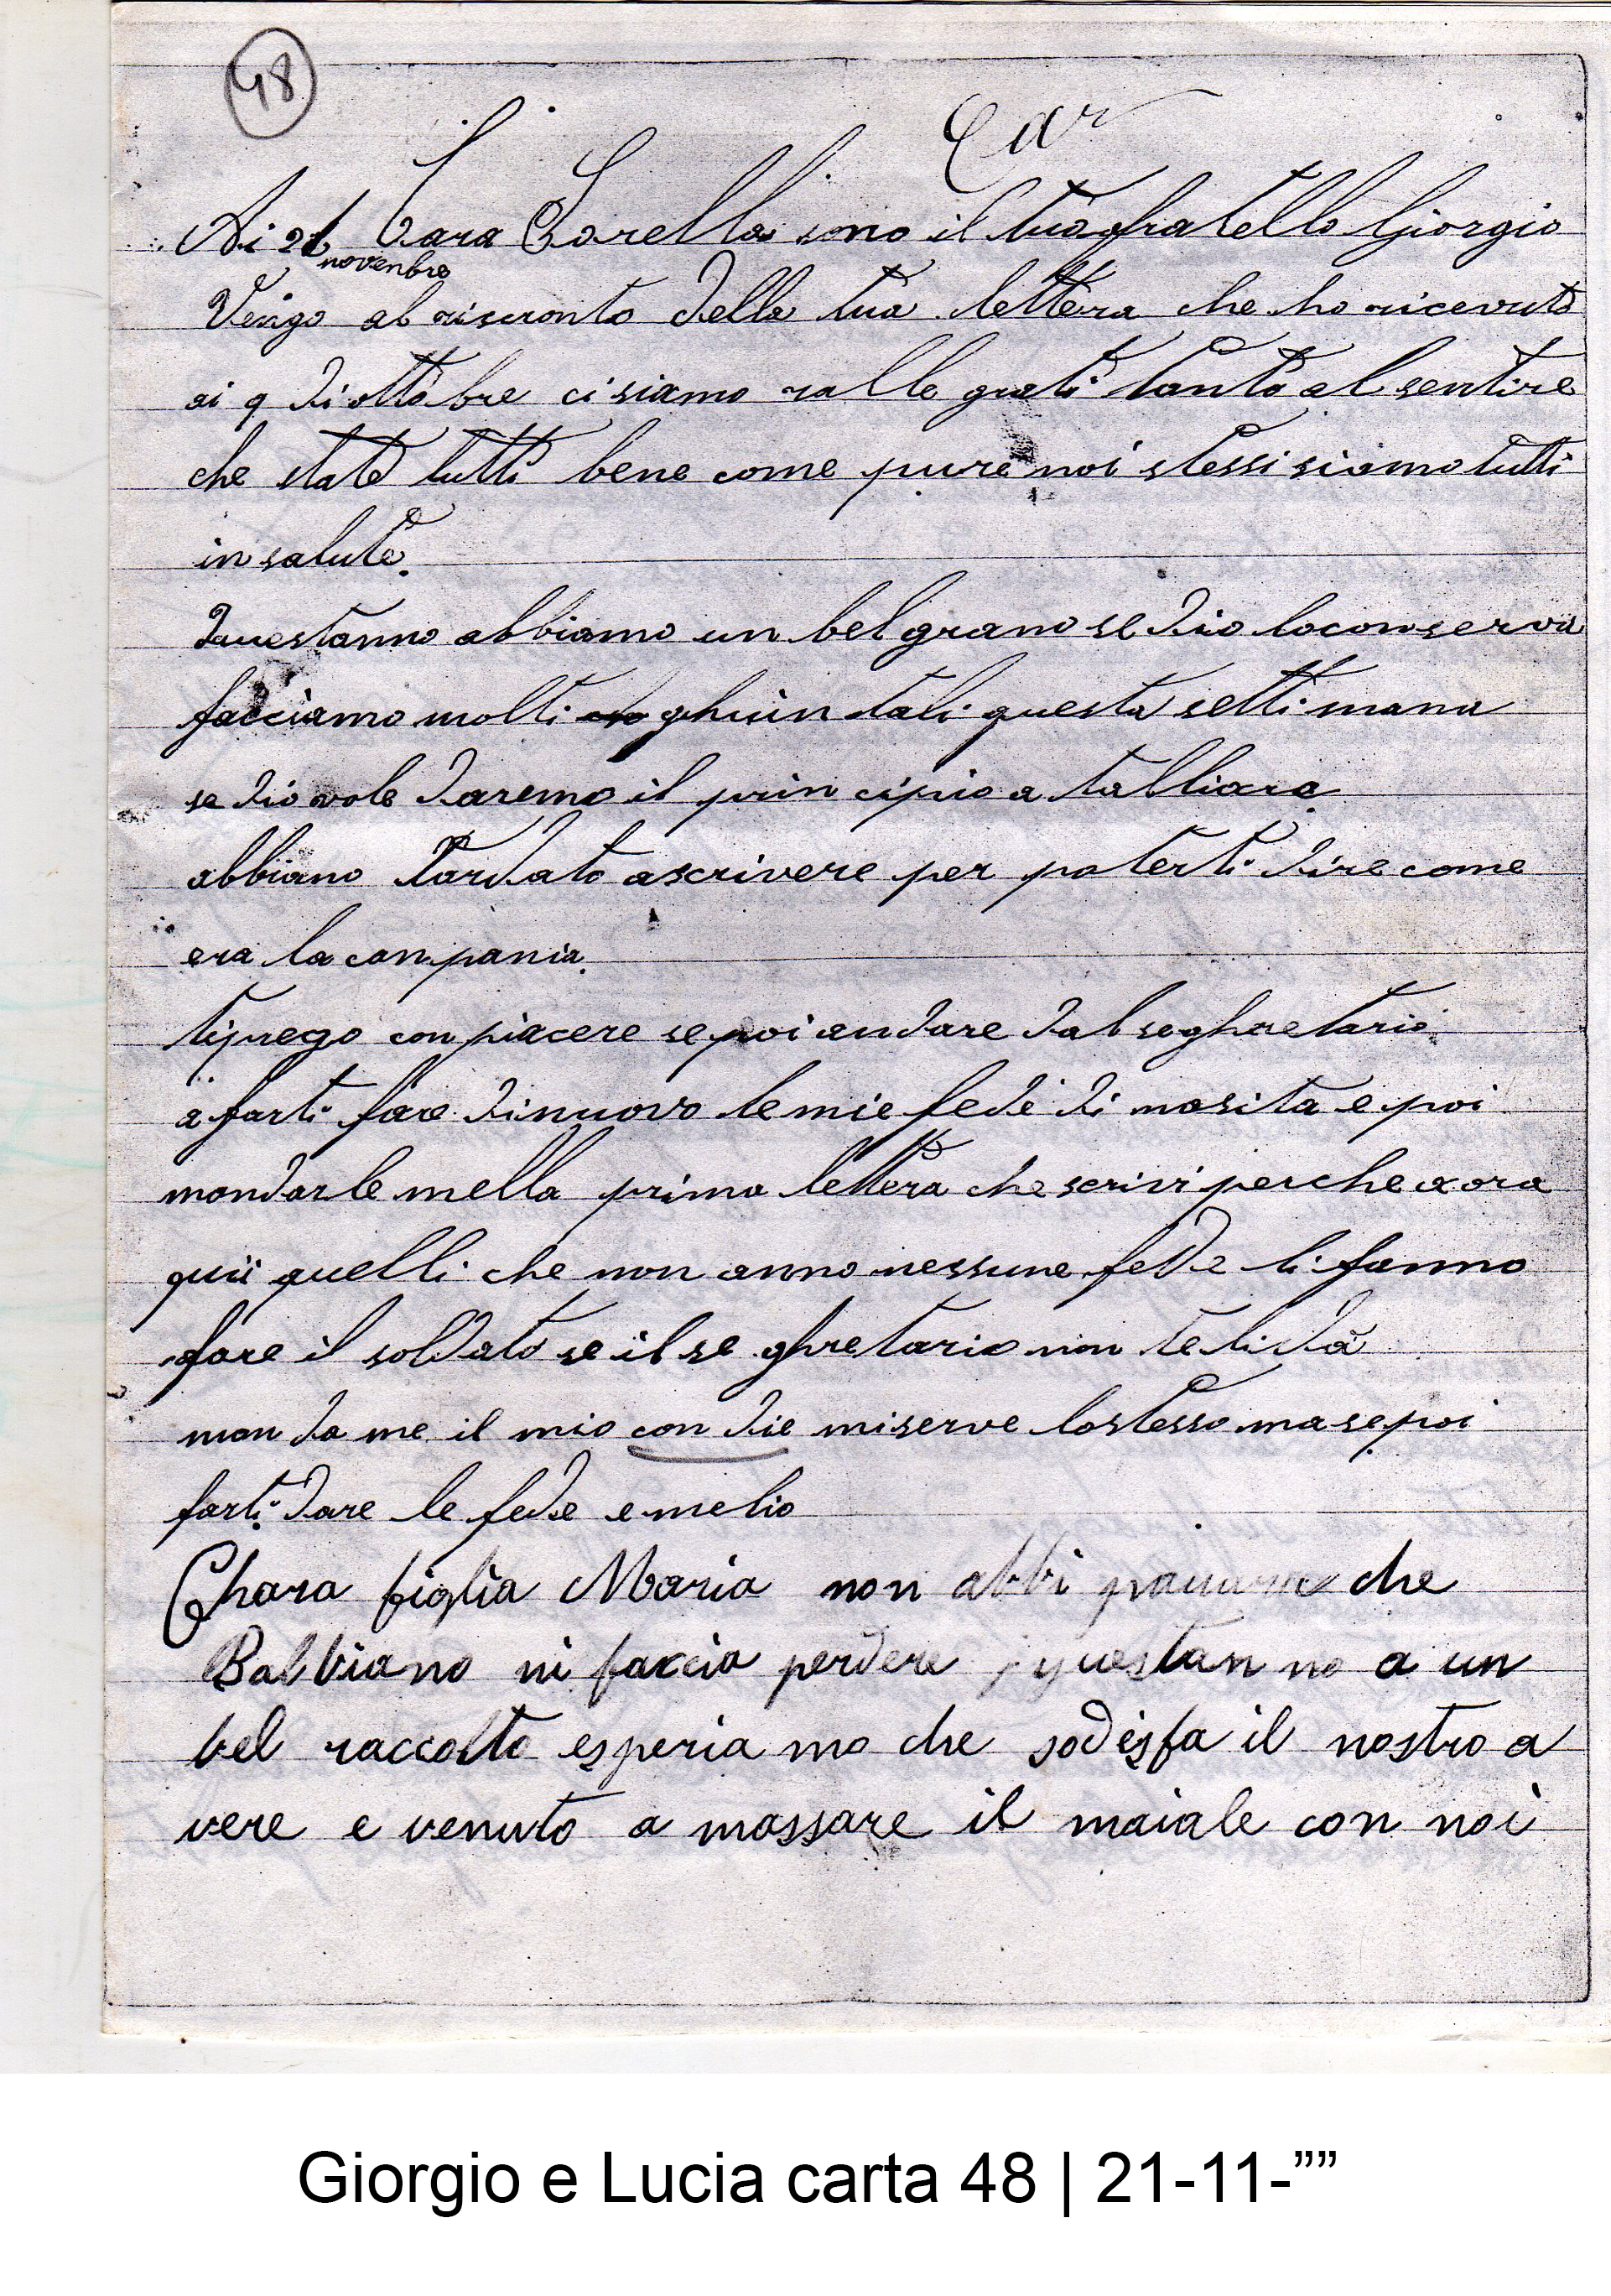 48
Car
Ai 21 Cara Sorella sono il tuo fratello Giorgio
novenbre
Vengo al riscronto della tua lettera che ho ricevuto
ai 9 di ottobre ci siamo ralle grati tanto al sentire
che state tutti bene come pure noi stessi siamo tutti
in salute.
Questanno abbiamo un bel grano se Dio lo conserva
facciamo molti ghuin tali questa setti mana
se dio vole daremo il prin cipio a talliare
abbiano tardato a scrivere per poterti dire come
era la canpania.
ti prego con piacere se poi andare dal seghretario
a farti fare di nuovo le mie fede di nasita e poi
mandarle nella prima lettera che scrivi perche a ora
quii quelli che non anno nessune fede li fanno
fare il soldato se il se ghretario non te li dà
man da me il mio con die mi serve lo stesso ma se poi
farti dare le fede e melio
Chara figlia Maria non abbi pauura che
Balbiano ni faccia perdere questan no a un
bel raccolto esperia mo che sodisfa il nostro a
vere e venuto a massare il maiale con noi
Giorgio e Lucia carta 48 | 21-11-””